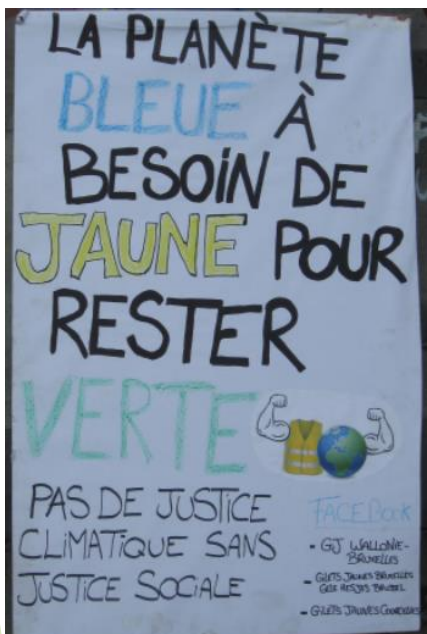 LA PLANÈTE
BLEUE À
BESOIN DE
JAUNE POUR
RESTER
VERTE
PAS DE JUSTICE
CLIMATIQUE SANS
JUSTICE SOCIALE
FACEBOOK
- GJ WALLONIE-
BRUXELLES
- GILETS JAUNES BRUXELLES
GELE HESJES BRUSSEL
- GILETS JAUNES